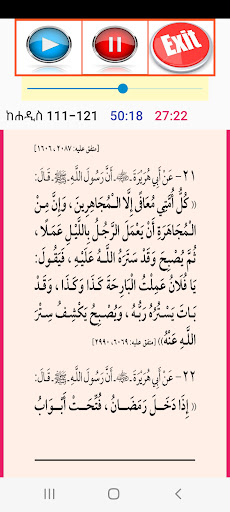 Exit
ከሐዲስ 111-121 50:18 27:22
[متفق عليه: ٢٠٨٧، ١٦٠٦]
٢١- عَنْ أَبِي هُرَيْرَةَ ـ ﷺ ـ أَنَّ رَسُولَ اللَّهِ ـ ﷺ ـ قَالَ:
«كُلُّ أُمَّتِي مُعَافًى إِلَّا الْـمُجَاهِرِينَ، وَإِنَّ مِنَ
الْـمُجَاهَرَةِ أَنْ يَعْمَلَ الرَّجُلُ بِاللَّيْلِ عَمَلًا،
ثُمَّ يُصْبِحَ وَقَدْ سَتَرَهُ اللَّـهُ عَلَيْهِ، فَيَقُولَ:
يَا فُلَانُ عَمِلْتُ الْبَارِحَةَ كَذَا وَكَذَا، وَقَدْ
بَاتَ يَسْتُرُهُ رَبُّـهُ، وَيُصْبِحُ يَكْشِفُ سِتْرَ
اللَّـهِ عَنْهُ» [متفق عليه: ٦٠٦٩، ٢٩٩٠]
٢٢- عَنْ أَبِي هُرَيْرَةَ ـ ـ أَنَّ رَسُولَ اللَّهِ ـ ﷺ ـ قَالَ:
«إِذَا دَخَلَ رَمَضَـانُ، فُتِّحَتْ أَبْـوَابُ